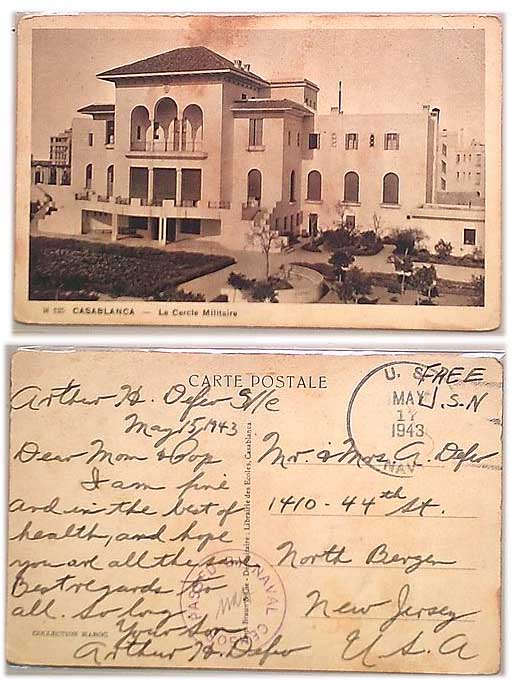 CASABLANCA — Le Cercle Militaire
CARTE POSTALE
Arthur H. Defeo S1/c
May 15, 1943
Dear Mom & Pop
I am fine
and in the best of
health, and hope
you are all the same
Best regards to
all. so long
Your Son
Arthur H. Defeo
COLLECTION MAROC
Dépositaire : Librairie des Ecoles, Casablanca
PASSED NAVAL CENSOR
U. S.
MAY
17
1943
NAV
FREE
U.S.N
Mr. & Mrs. A. Defeo
1410 - 44th St.
North Bergen
New Jersey
U.S.A